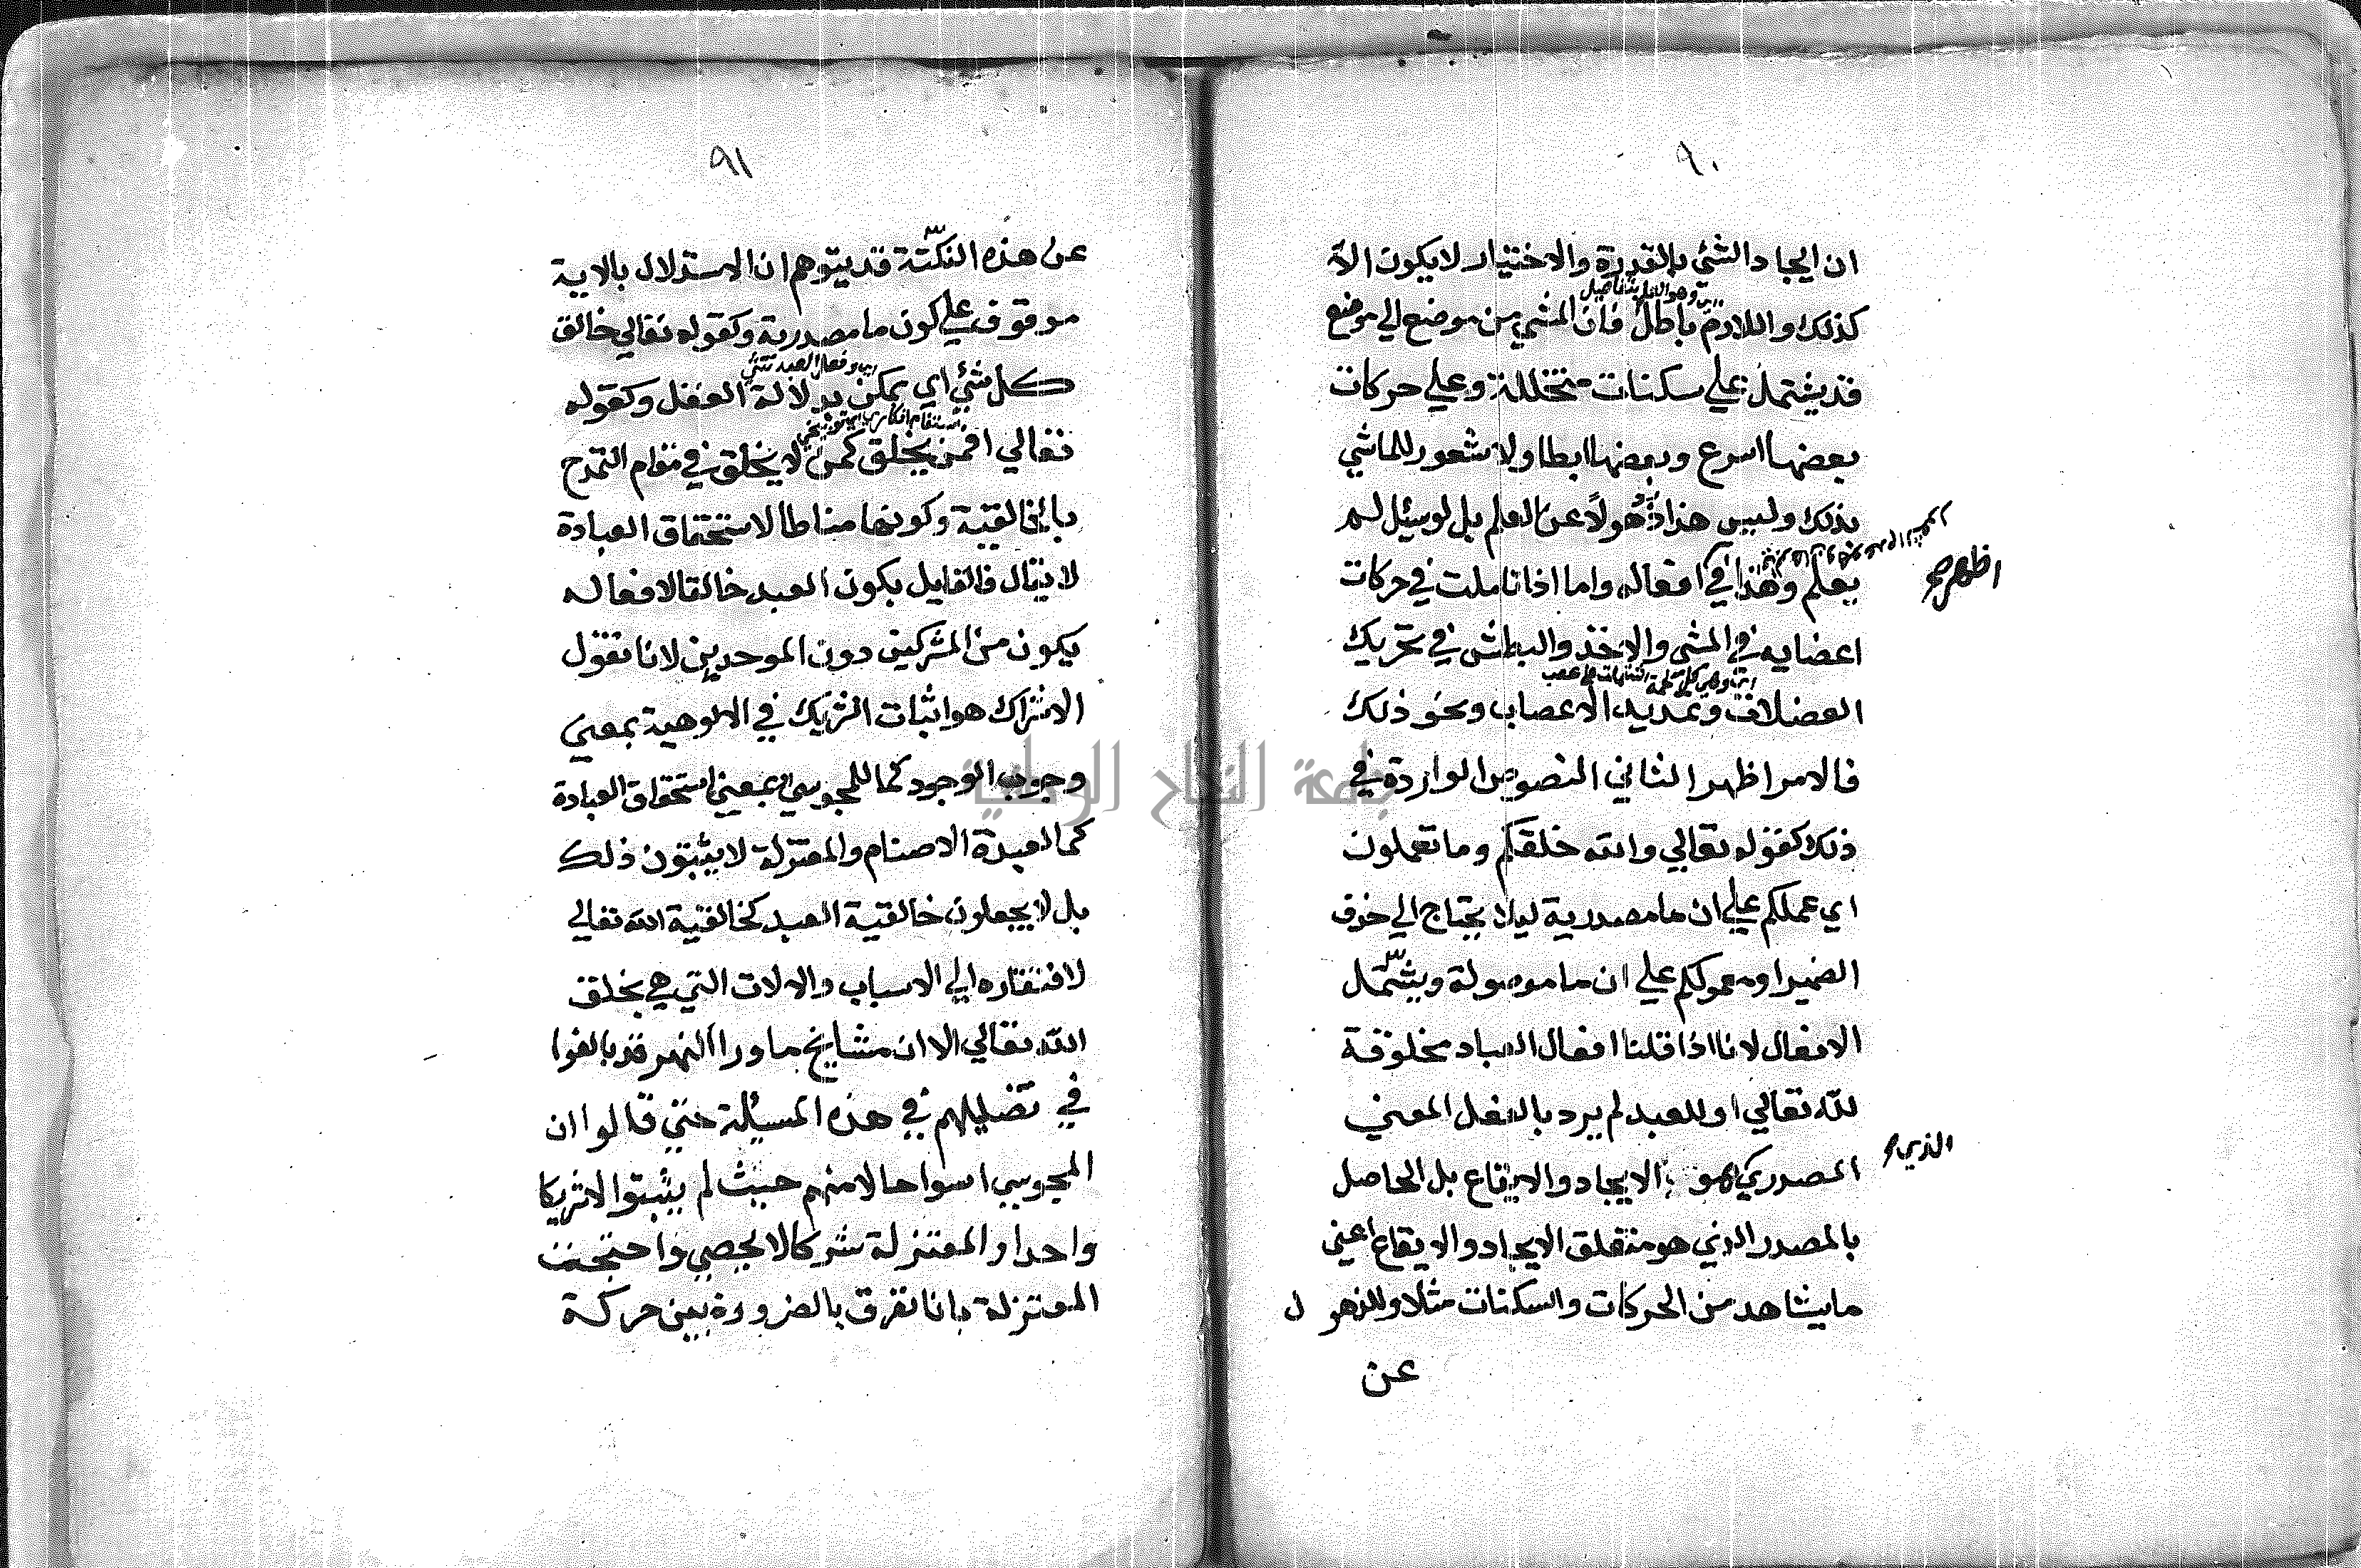 ٩٠
ان ايجاد الشئ بالقدرة والاختيار لا يكون الا
اي وهو العلم بتفاصيل
كذلك واللازم باطل فان المشي من موضع الي موضع
قد يشتمل علي سكنات متخللة وعلي حركات
بعضها اسرع وبعضها ابطا ولا شعور للماشي
بذلك وليس هذا ذهولاً عن العلم بل لو سئل لم
يعلم وهذا في افعاله واما اذا تاملت في حركات
اظهر صح
اعضايه في المشي والاخذ والبطش في تحريك
العضلات وتمديد الاعصاب ونحو ذلك
فالامر اظهر الثاني النصوص الواردة في
ذلك كقوله تعالي والله خلقكم وما تعملون
اي عملكم علي ان ما مصدرية ليلا يحتاج الي حذف
الضمير او معمولكم علي ان ما موصولة ويشتمل
الافعال لانا اذا قلنا افعال العباد مخلوقة
لله تعالي او للعبد لم يرد بالفعل المعني
الذي
المصدري هو الايجاد والايقاع بل الحاصل
بالمصدر الذي هو متعلق الايجاد والايقاع اعني
ما يشاهد من الحركات والسكنات مثلا وللذهول
عن
٩١
عن هذه النكتة قد يتوهم ان الاستدلال بالاية
موقوف علي كون ما مصدرية وكقوله تعالي خالق
اي وفعل العبد شئ
كل شئ اي ممكن بدلالة العقل وكقوله
استفهام انكاري اي توبيخي
تعالي افمن يخلق كمن لا يخلق في مقام التمدح
بالخالقية وكونها مناطا لاستحقاق العبادة
لا يقال فالقايل بكون العبد خالقا لافعاله
يكون من المشركين دون الموحدين لانا نقول
الاشراك هو اثبات الشريك في الالوهية بمعني
وجوب الوجود كما للمجوس او بمعني استحقاق العبادة
كما لعبدة الاصنام والمعتزلة لا يثبتون ذلك
بل لا يجعلون خالقية العبد كخالقية الله تعالي
لافتقاره الي الاسباب والالات التي هي بخلق
الله تعالي الا ان مشايخ ما ورا النهر قد بالغوا
في تضليلهم في هذه المسيلة حتي قالوا ان
المجوس اسوا حالا منهم حيث لم يثبتوا الا شريكا
واحدا والمعتزلة شركا لا يحصي واحتجت
المعتزلة بانا نفرق بالضرورة بين حركة
جامعة النجاح الوطنية